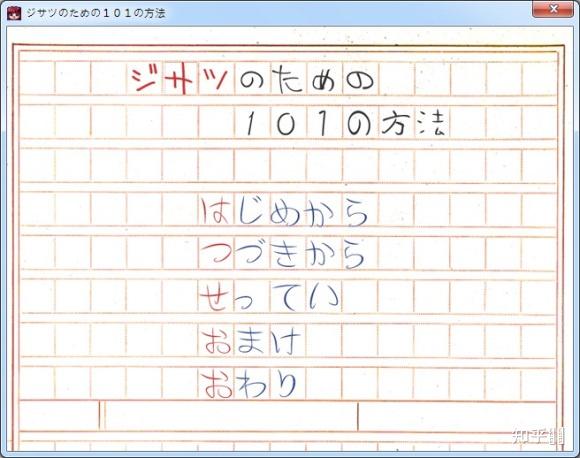 ジサツのための１０１の方法
ジサツのための
１０１の方法
はじめから
つづきから
せってい
おまけ
おわり
知乎